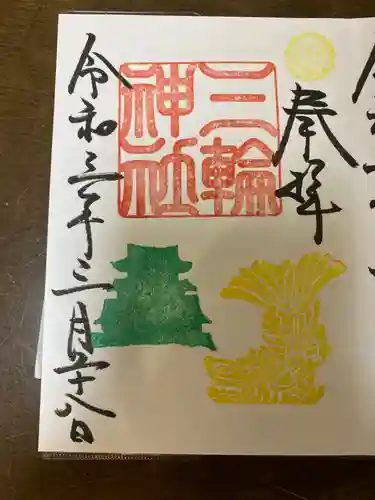 奉拝
三輪
神社
令和三年三月廿八日